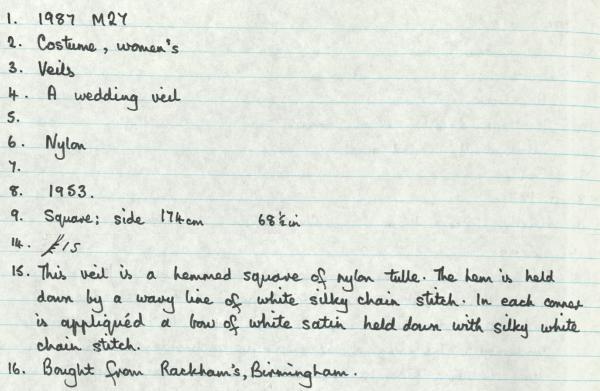 1. 1987 M27
2. Costume, women's
3. Veils
4. A wedding veil
5.
6. Nylon
7.
8. 1953.
9. Square; side 174cm 68½in
14. £15
15. This veil is a hemmed square of nylon tulle. The hem is held
down by a wavy line of white silky chain stitch. In each corner
is appliquéd a bow of white satin held down with silky white
chain stitch.
16. Bought from Rackham's, Birmingham.